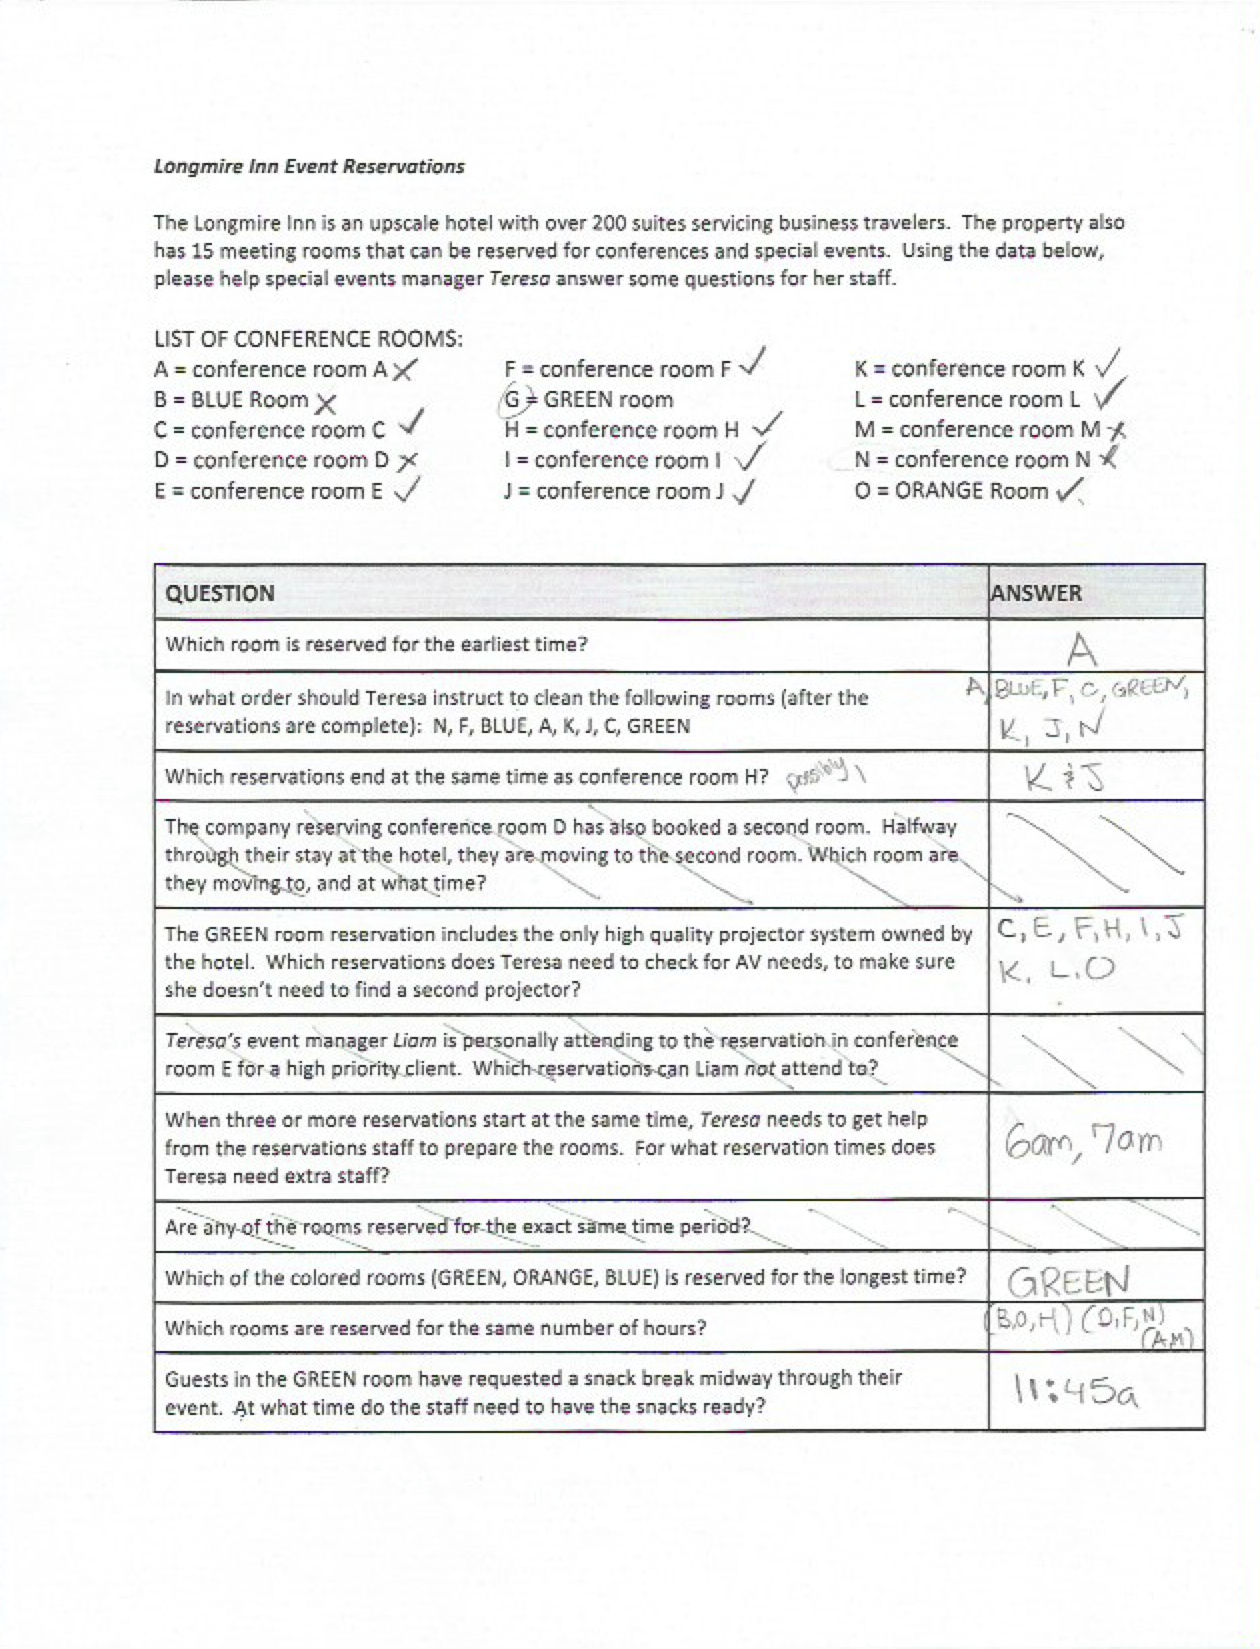 Longmire Inn Event Reservations
The Longmire Inn is an upscale hotel with over 200 suites servicing business travelers. The property also
has 15 meeting rooms that can be reserved for conferences and special events. Using the data below,
please help special events manager Teresa answer some questions for her staff.
LIST OF CONFERENCE ROOMS:
A = conference room A ✗
B = BLUE Room ✗
C = conference room C ✓
D = conference room D ✗
E = conference room E ✓
F = conference room F ✓
G = GREEN room
H = conference room H ✓
I = conference room I ✓
J = conference room J ✓
K = conference room K ✓
L = conference room L ✓
M = conference room M ✗
N = conference room N ✗
O = ORANGE Room ✓
QUESTION ANSWER
Which room is reserved for the earliest time? A
In what order should Teresa instruct to clean the following rooms (after the
reservations are complete): N, F, BLUE, A, K, J, C, GREEN
A, BLUE, F, C, GREEN,
K, J, N
Which reservations end at the same time as conference room H? possibly K & J
The company reserving conference room D has also booked a second room. Halfway
through their stay at the hotel, they are moving to the second room. Which room are
they moving to, and at what time?
The GREEN room reservation includes the only high quality projector system owned by
the hotel. Which reservations does Teresa need to check for AV needs, to make sure
she doesn't need to find a second projector?
C, E, F, H, I, J
K, L, O
Teresa's event manager Liam is personally attending to the reservation in conference
room E for a high priority client. Which reservations can Liam not attend to?
When three or more reservations start at the same time, Teresa needs to get help
from the reservations staff to prepare the rooms. For what reservation times does
Teresa need extra staff?
6am, 7am
Are any of the rooms reserved for the exact same time period?
Which of the colored rooms (GREEN, ORANGE, BLUE) is reserved for the longest time? GREEN
Which rooms are reserved for the same number of hours? (B,O,H) (D,F,N)
(A,M)
Guests in the GREEN room have requested a snack break midway through their
event. At what time do the staff need to have the snacks ready?
11:45a